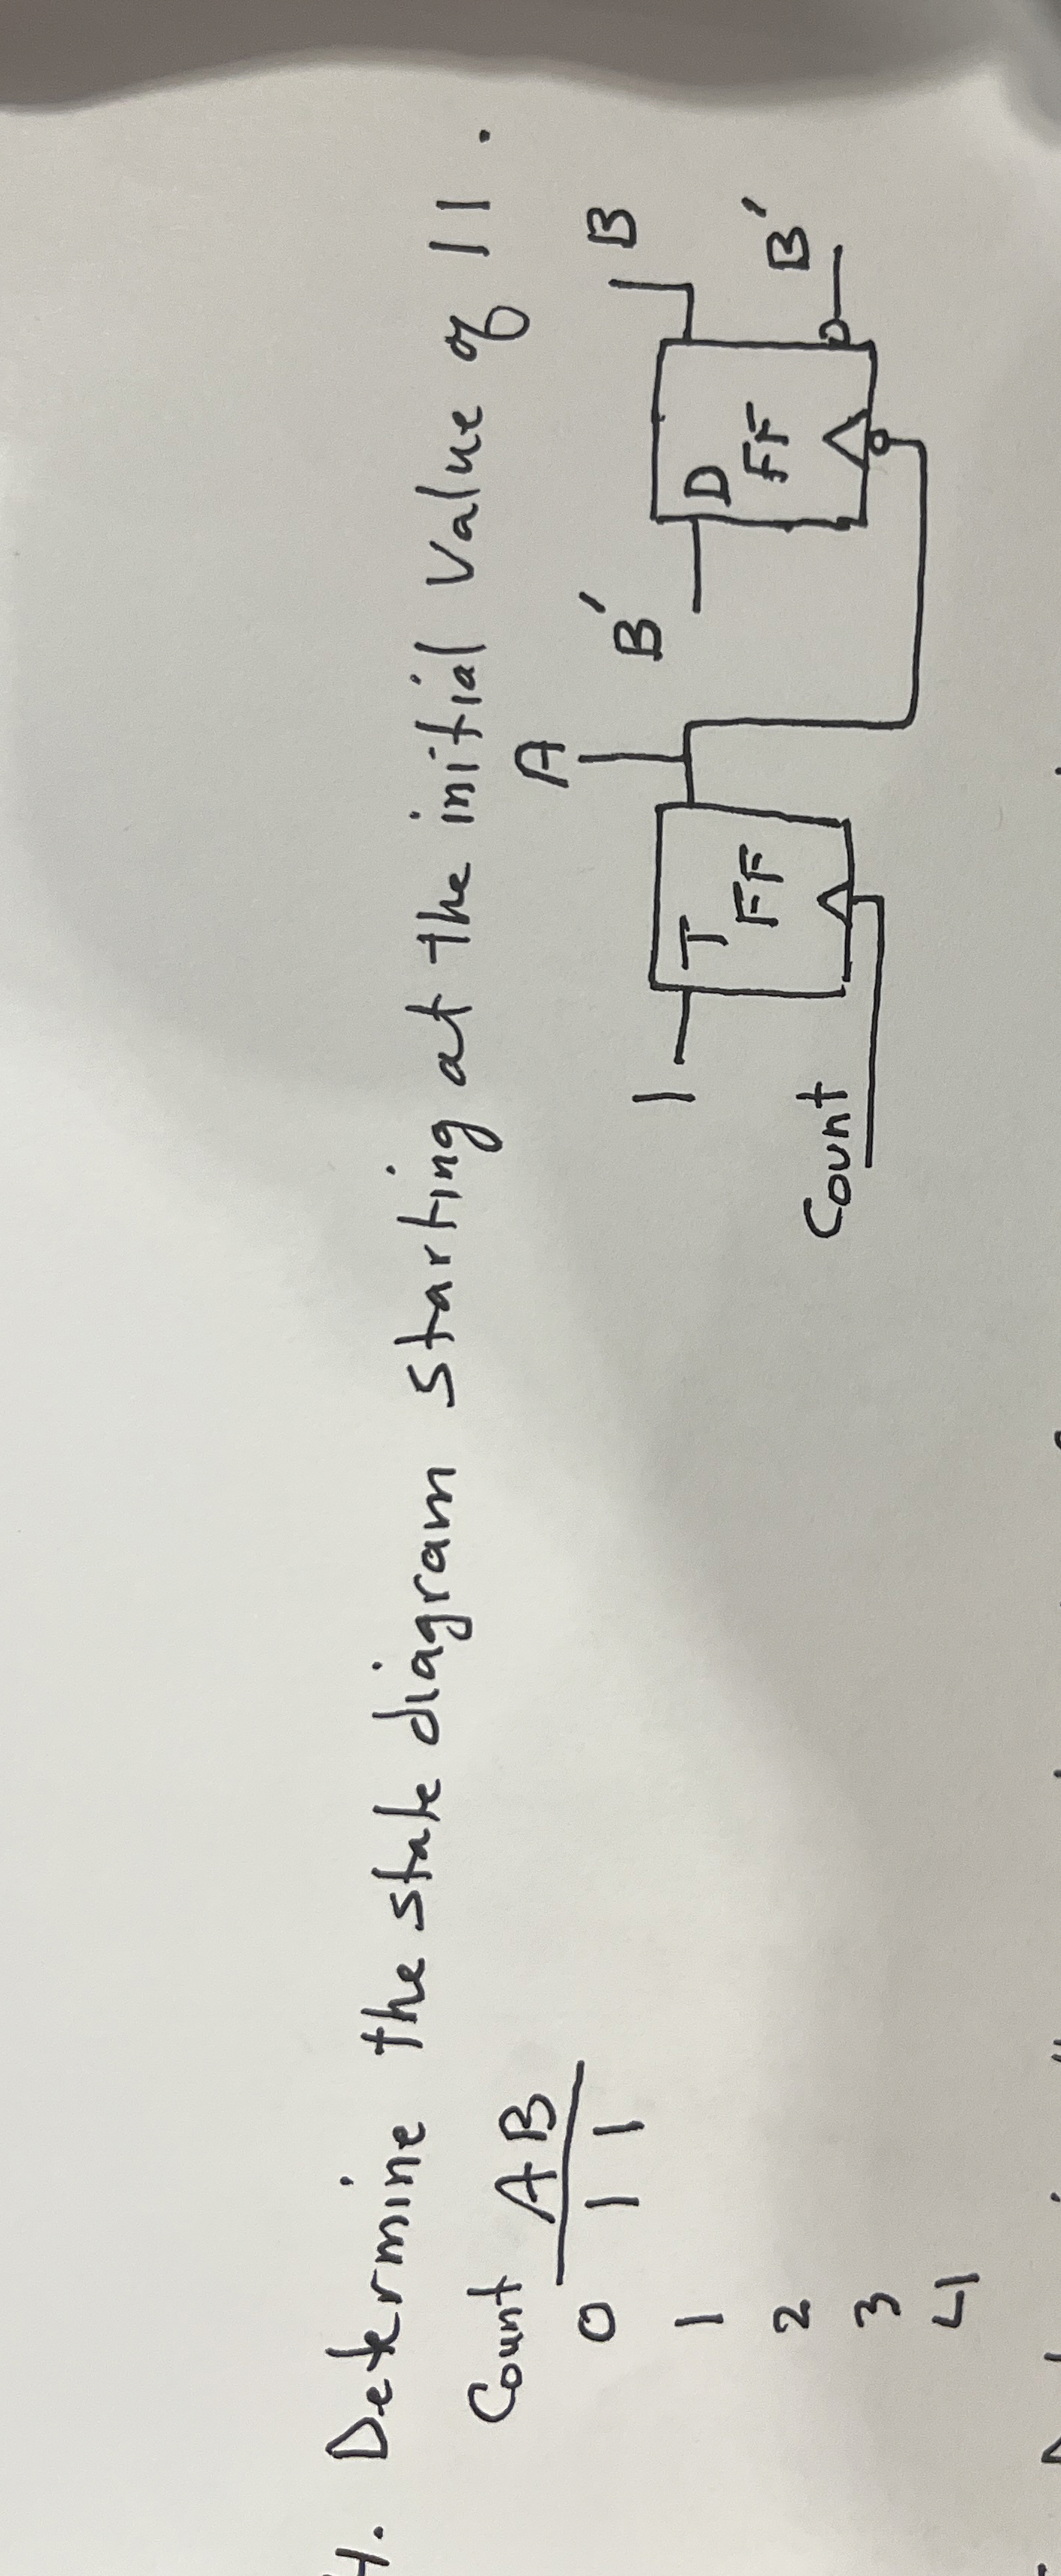 4. Determine the state diagram starting at the initial value of 11.
Count A B
0 1 1
1
2
3
4
1 T FF A
Count
B' D FF B
B'